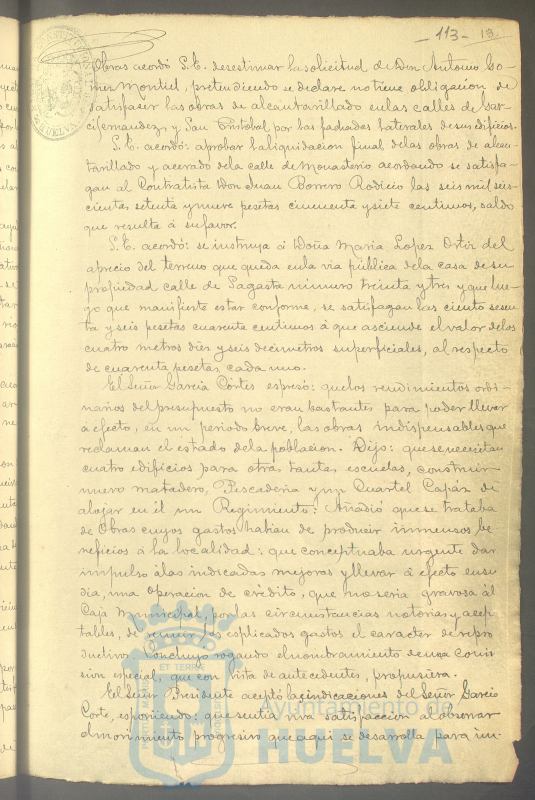 -113- 19.
Obras acordó S.E. desestimar la solicitud de Don Antonio Go-
mez Montiel, pretendiendo se declare no tiene obligacion de
satisfacer las obras de alcantarillado en las calles de Gar-
cifernandez, y San Cristobal, por las fachadas laterales de sus edificios.
S.E. acordó: aprobar la liquidacion final de las obras de alcan-
tarillado y acerado de la calle de Monasterio acordando se satisfa-
gan al Contratista Don Juan Borrero Rodicio las seis mil seis-
cientas setenta y nueve pesetas cincuenta y siete centimos, saldo
que resulta á su favor.
S.E. acordó: se instruya á Doña Maria Lopez Ortiz del
aprecio del terreno que queda en la via pública de la casa de su
propiedad calle de Sagasta número treinta y tres y que lue-
go que manifieste estar conforme, se satisfagan las ciento sesen-
ta y seis pesetas cuarenta centimos á que asciende el valor de los
cuatro metros diez y seis decimetros superficiales, al respecto
de cuarenta pesetas cada uno.
El Señor Garcia Cortés espresó: que los rendimientos ordi-
narios del presupuesto no eran bastantes para poder llevar
á efecto, en un periodo breve, las obras indispensables que
reclaman el estado de la poblacion. Dijo: que se necesitan
cuatro edificios para otras tantas escuelas, construir
nuevo matadero, Pescaderia y un Cuartel capáz de
alojar en él un Regimiento: Añadió que se trataba
de Obras cuyos gastos habian de producir inmensos be
neficios á la localidad: que conceptuaba urgente dar
impulso á las indicadas mejoras y llevar á efecto en su
dia, una operacion de crédito, que no seria gravosa al
Caja Municipal, por las circunstancias notorias y acep
tables, de reunir los esplicados gastos el caracter de repro
ductivos. Concluyo rogando el nombramiento de una comi
sion especial, que con vista de antecedentes, propusiera.
El Señor Presidente aceptó las indicaciones del Señor Garcia
Cortés, esponiendo: que sentia viva satisfaccion al observar
el movimiento progresivo que aqui se desarrolla para im-
Ayuntamiento de
HUELVA